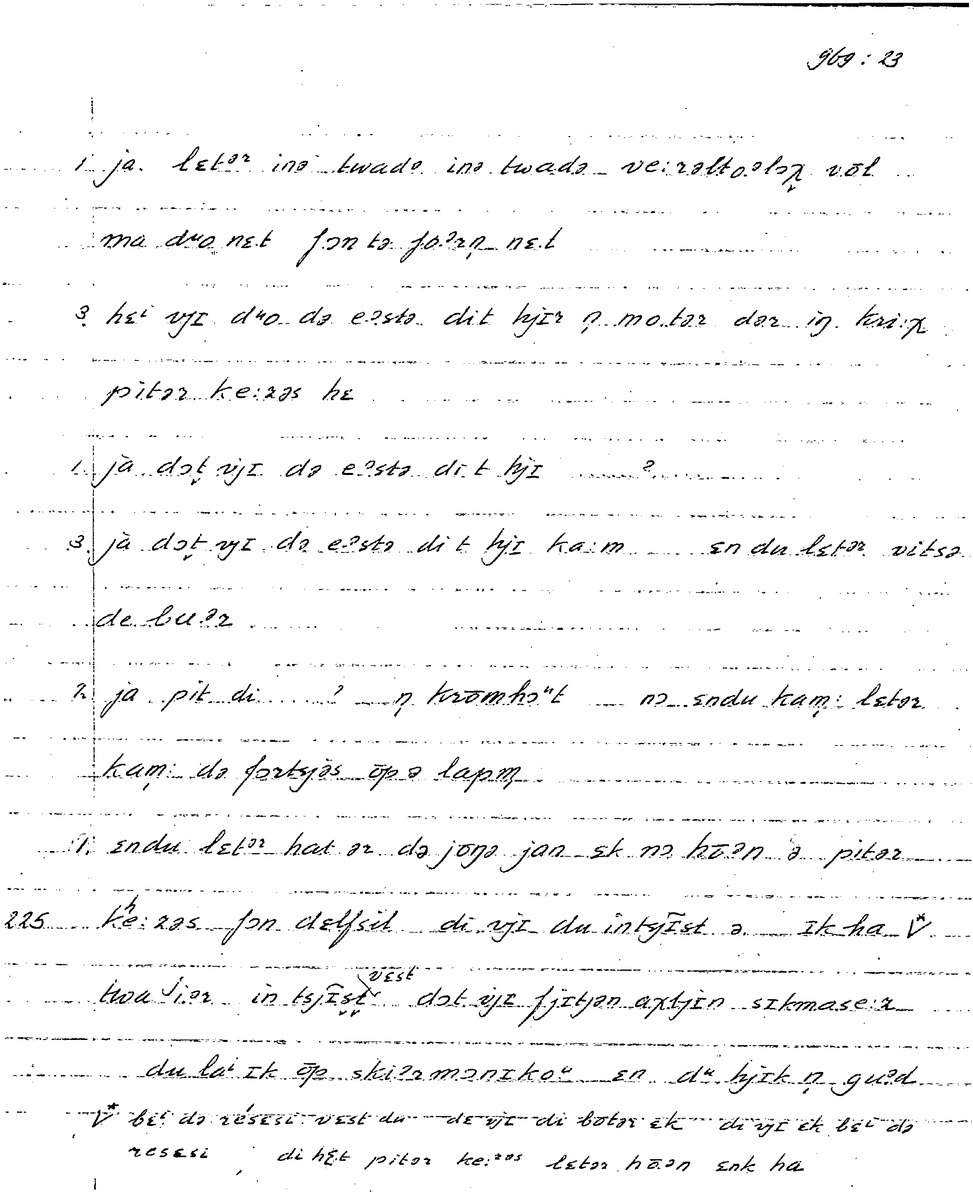 969 : 23
1. ja. lɛtᵊʳ inə twadə inə twadə ve:rəlto.ᵊlɔχ vōl
ma dᵘo nɛt fɔn tə fo.ᵊrn̩ nɛt
3. hɛⁱ vjɪ dᵘo də eᵊstə dit hjɪr n̩ mo.tər dər in̩ kri:χ
pitər ke:zəs hɛ
1. ja dɔt̬ vjɪ də eᵊstə dit hjɪ ...... ?
3. ja dɔt̬ vjɪ də eᵊstə dit hjɪ ka:m ɛn du lɛtər vitsə
de bu.ᵊr
2. ja pit di ? n̩ krōmhɔᵘt nɔ ɛndu kam̩: lɛtər
kam̩: də fɔrtsjəs ōp ə lapm̩
1. ɛndu lɛtᵊʳ hat ər də joŋə jan ɛk nɔ hō.ᵊn ə pitər
225 ke:zəs fɔn dɛlfsil di vjɪ du intsjīst ə. ɪk ha V*
vɛst
twa jiər in tsjīst dɔt vjɪ fjitjən aχtjin sɪkmase:z
du laⁱ ɪk ōp skiᵊrmɔnɪkoᵘ ɛn dᵘ hjɪk n̩ guᵊd
V* bɛⁱ də resɛsi vɛst du de vjɪ di botər ɛk di vjɪ ɛk bɛⁱ də
resɛsi , di hɛt pitər ke:zəs lɛtər hō.ᵊn ɛnk ha